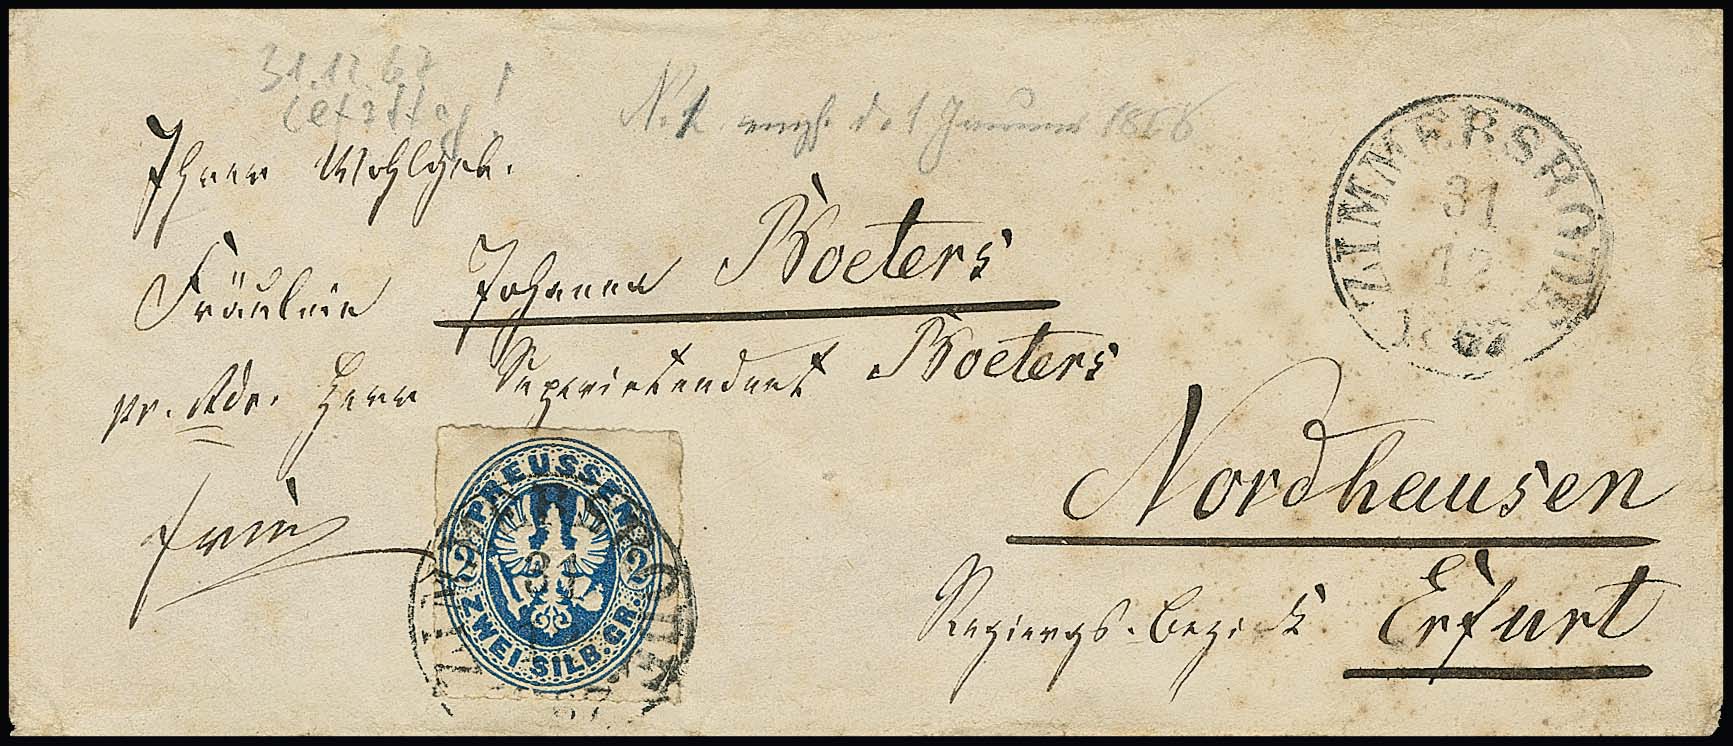 31.12.67
letzttag!
N. 1. empf. d. 1 Januar 1868
Ihrer Wohlgeb.
Fräulein Johanna Woeters
pr. Adr. Herrn Superintendent Woeters
frei
Nordhausen
Regiergs.-Bezirk Erfurt
ZIMMERSRODE
31
12
1867
PREUSSEN
2 2
ZWEI SILB. GR.
ZIMMERSRODE
31